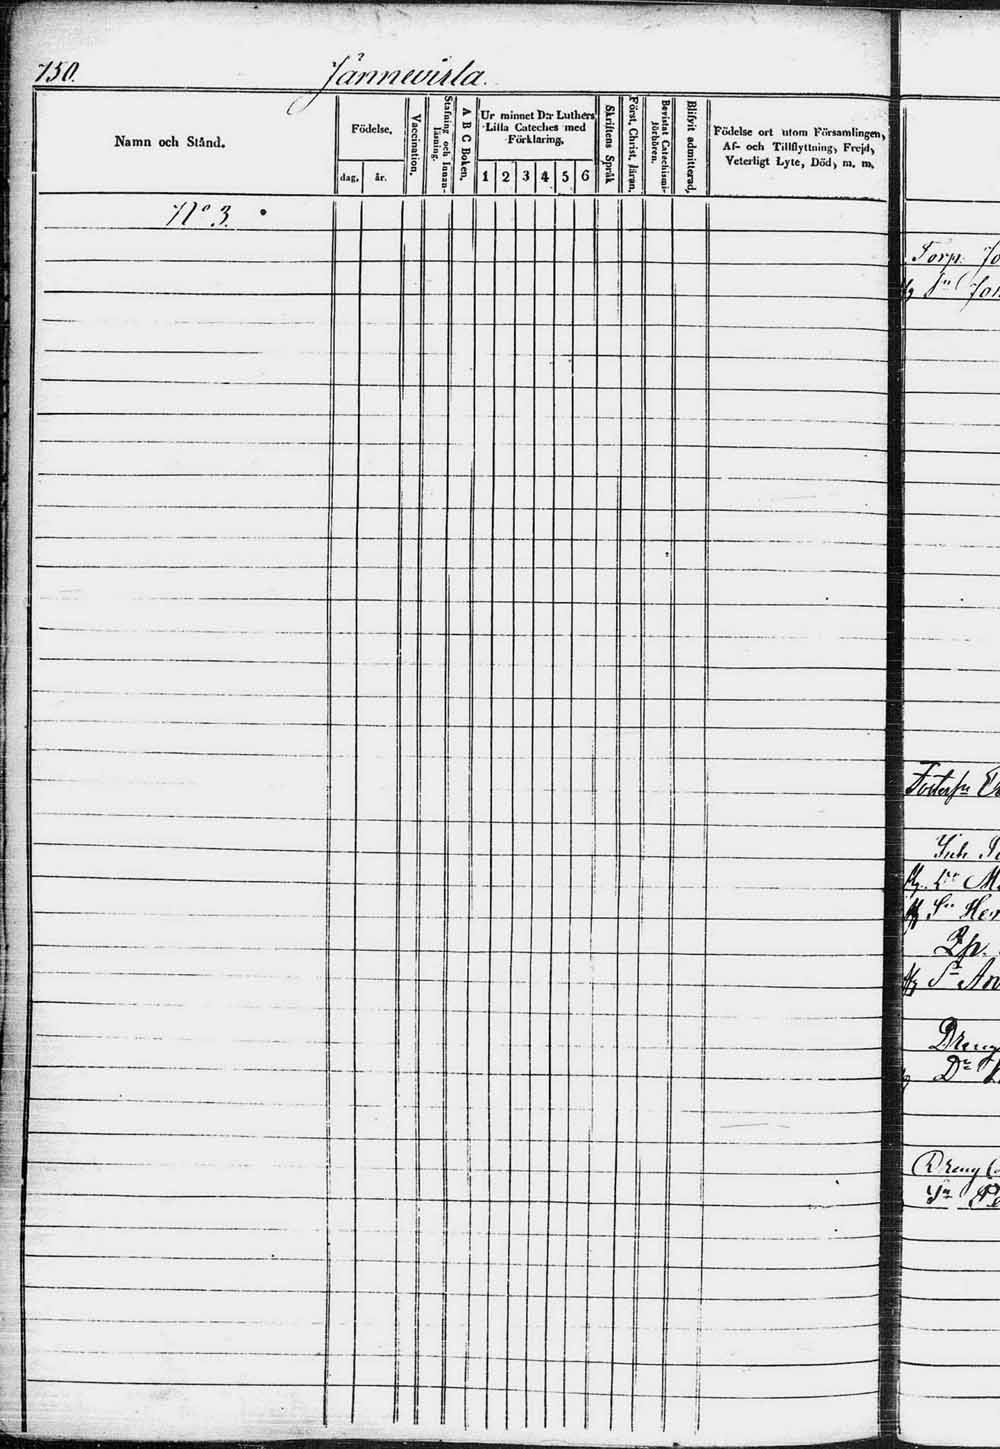 750. Jannevirta.
Namn och Stånd.
Födelse.
dag. år.
Vaccination.
Stafning och Innanläsning.
A B C Boken.
Ur minnet D:r Luthers
Lilla Cateches med
Förklaring.
1 2 3 4 5 6
Skriftens Språk
Först. Christ. läran.
Bevistat Catechismi-förhören.
Blifvit admitterad.
Födelse ort utom Församlingen,
Af- och Tillflyttning, Frejd,
Veterligt Lyte, Död, m. m.
N:o 3.
Torp. Jo
Sn Joh
Inh.
Sn Hen
Dreng
Dreng
Sn Pe